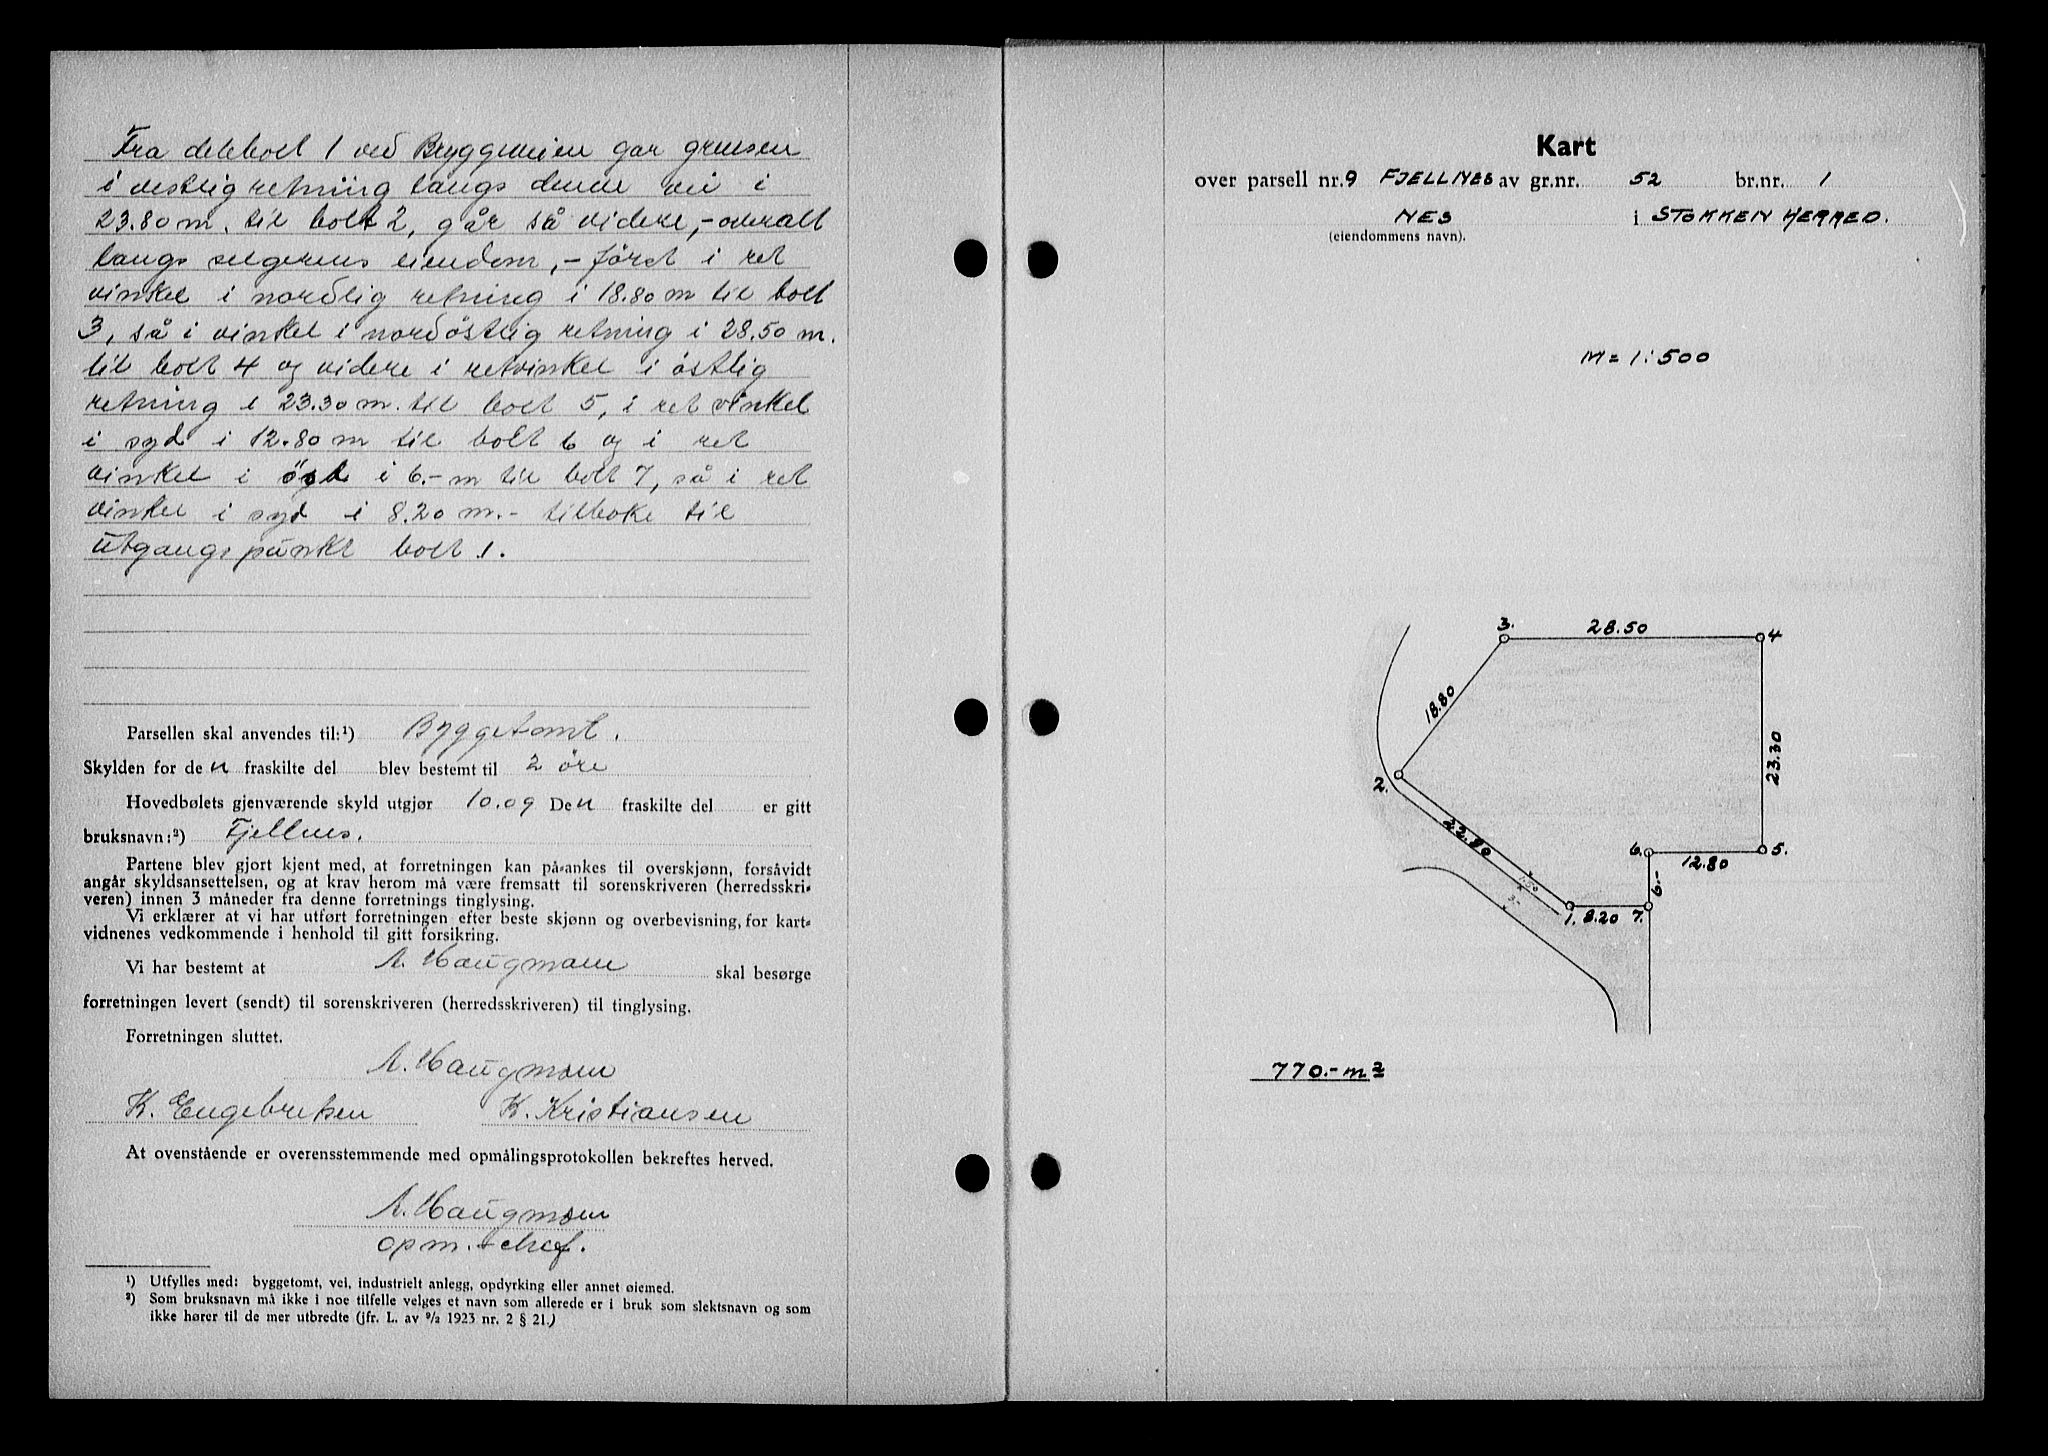 Fra delebolt 1 ved Bryggeveien går grensen
i vestlig retning langs denne vei i
23.80 m. til bolt 2, går så videre, - overalt
langs selgerens eiendom, - først i ret
vinkel i nordlig retning i 18.80 m til bolt
3, så i vinkel i nordöstlig retning i 28.50 m.
til bolt 4 og videre i retvinkel i östlig
retning i 23.30 m. til bolt 5, i ret vinkel
i syd i 12.80 m til bolt 6 og i ret
vinkel i öst i 6.- m til bolt 7, så i ret
vinkel i syd i 8.20 m.- tilbake til
utgangspunkt bolt 1.
Parsellen skal anvendes til:¹) Byggetomt.
Skylden for den fraskilte del blev bestemt til 2 öre
Hovedbølets gjenværende skyld utgjør 10.09 Den fraskilte del er gitt
bruksnavn:²) Fjellnes.
Partene blev gjort kjent med, at forretningen kan på-ankes til overskjønn, forsåvidt
angår skyldsansettelsen, og at krav herom må være fremsatt til sorenskriveren (herredsskri-
veren) innen 3 måneder fra denne forretnings tinglysing.
Vi erklærer at vi har utført forretningen efter beste skjønn og overbevisning, for kart-
vidnenes vedkommende i henhold til gitt forsikring.
Vi har bestemt at A. Haugmoen skal besørge
forretningen levert (sendt) til sorenskriveren (herredsskriveren) til tinglysing.
Forretningen sluttet.
A. Haugmoen
K. Engebretsen K. Kristiansen
At ovenstående er overensstemmende med opmålingsprotokollen bekreftes herved.
A. Haugmoen
opm.-chef.
¹) Utfylles med: byggetomt, vei, industrielt anlegg, opdyrking eller annet øiemed.
²) Som bruksnavn må ikke i noe tilfelle velges et navn som allerede er i bruk som slektsnavn og som
ikke hører til de mer utbredte (jfr. L. av ⁹/₂ 1923 nr. 2 § 21.)
Kart
over parsell nr. 9 FJELLNES av gr.nr. 52 br.nr. 1
NES i STOKKEN HERRED.
(eiendommens navn).
M = 1:500
3. 28.50 4
18.80
23.30
2.
22.80
6. 12.80 5.
1.50
3.-
6.-
1. 8.20 7.
770.- m²